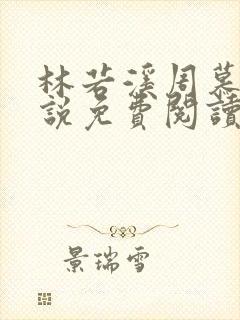 林若溪周慕
說免費閱讀
景瑞雪